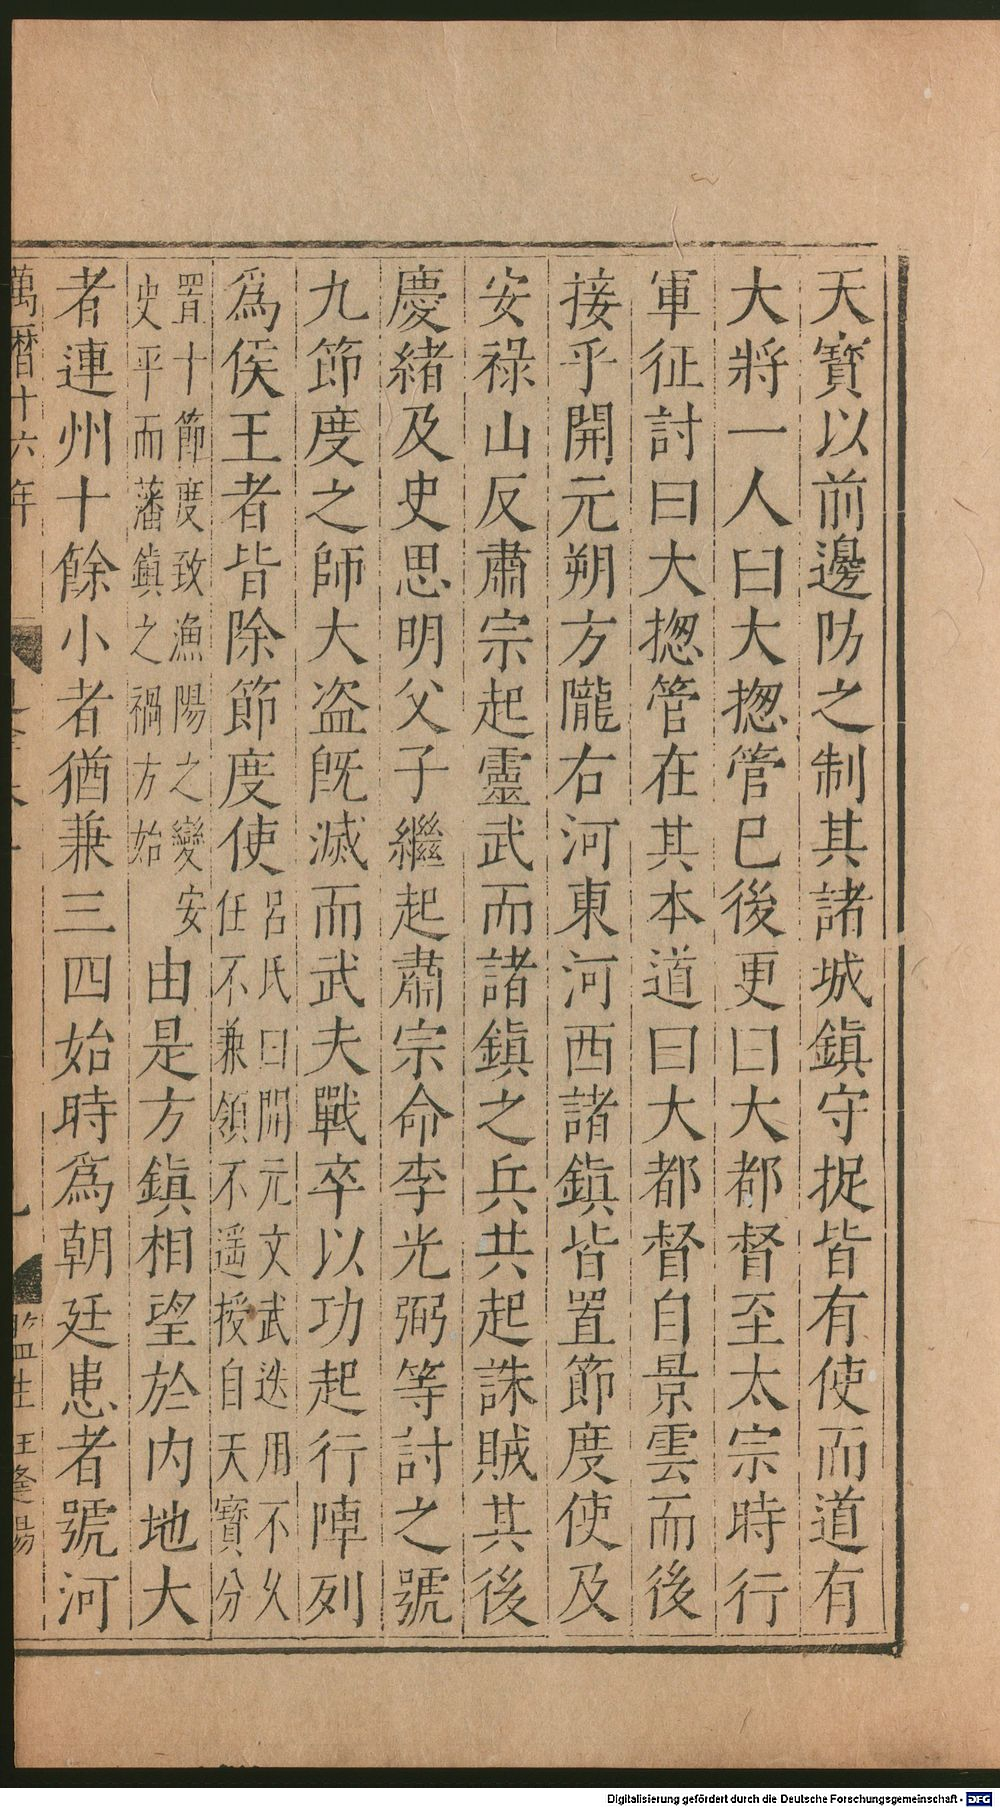 天寳以前邊防之制其諸城鎮守捉皆有使而道有
大將一人曰大揔管已後更曰大都督至太宗時行
軍征討曰大揔管在其本道曰大都督自景雲而後
接乎開元朔方隴右河東河西諸鎮皆置節度使及
安祿山反肅宗起靈武而諸鎮之兵共起誅賊其後
慶緒及史思明父子繼起肅宗命李光弼等討之號
九節度之師大盗旣滅而武夫戰卒以功起行陣列
爲侯王者皆除節度使
呂氏曰開元文武迭用不久
任不兼領不遥授自天寳分
置十節度致漁陽之變安
史平而藩鎮之禍方始
由是方鎮相望於内地大
者連州十餘小者猶兼三四始時爲朝廷患者號河
萬曆十六年
監生汪逢陽
Digitalisierung gefördert durch die Deutsche Forschungsgemeinschaft - DFG